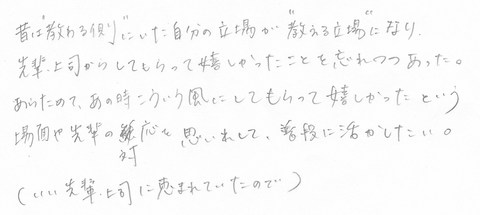 昔は"教わる側"にいた自分の立場が"教える立場"になり、
先輩・上司からしてもらって嬉しかったことを忘れつつあった。
あらためて、あの時こういう風にしてもらって嬉しかったという
場面や先輩の対応を思いだして、普段に活かしたい。
(いい先輩・上司に恵まれていたので)